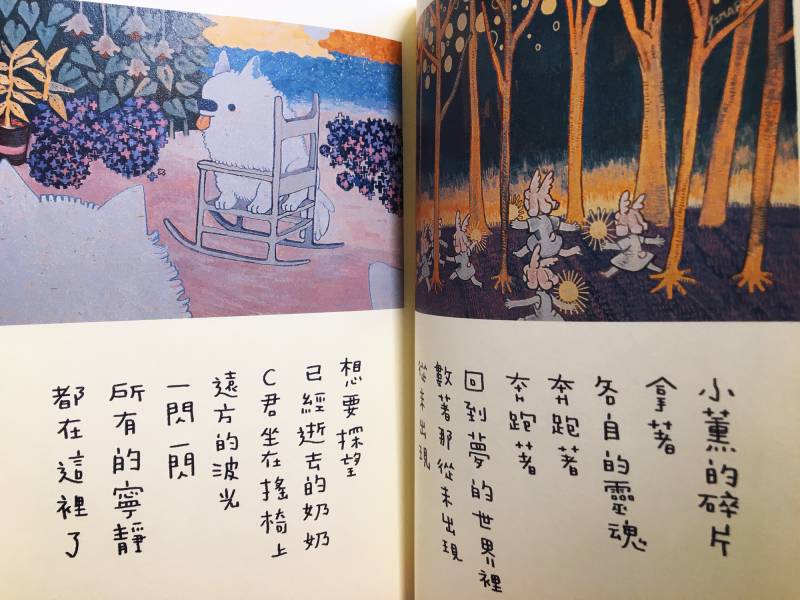 小薰的碎片
拿著
各自的靈魂
奔跑著
奔跑著
回到夢的世界裡
數著那從未出現
從未出現
想要探望
已經逝去的奶奶
C君坐在搖椅上
遠方的波光
一閃一閃
所有的寧靜
都在這裡了